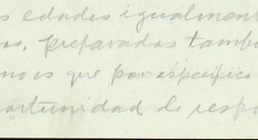 s edades igualment
as, preparadas tambi
no es que por específico
ortunidad de respo